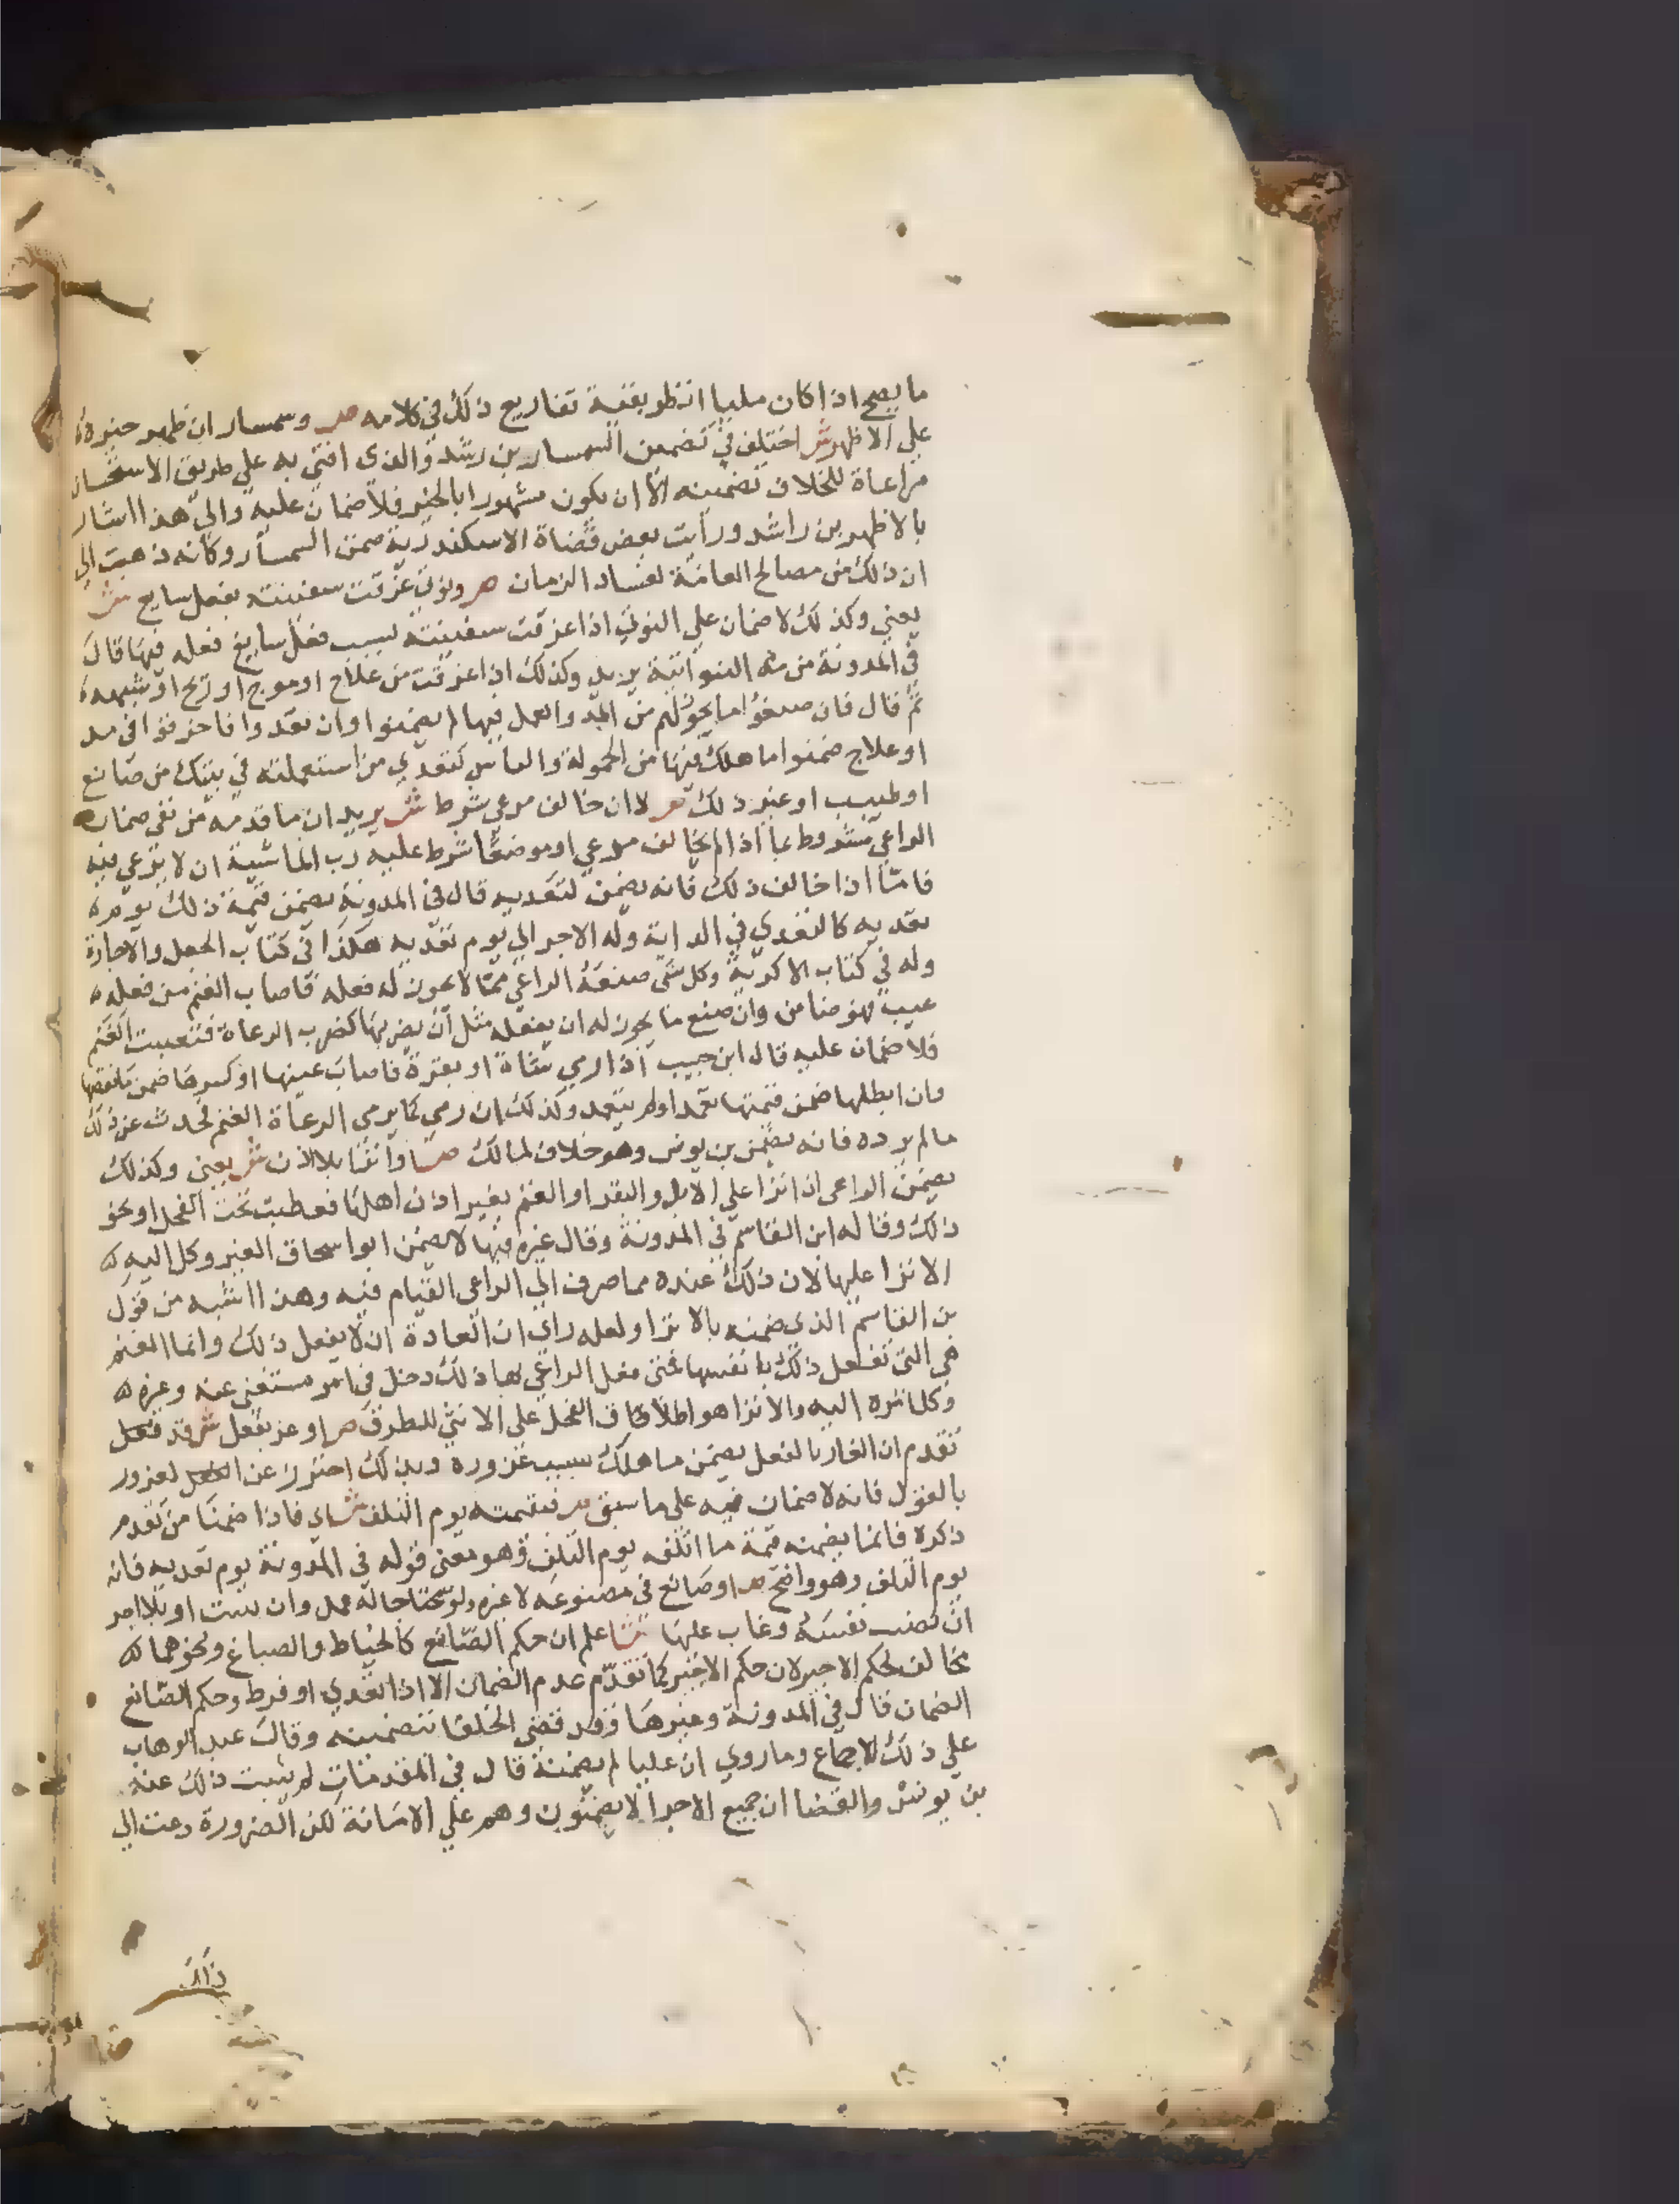 ما يصح اذا كان مليا انظر بقية تفاريع ذلك في كلامه ص وسمسار ان ظهر خيره
علي الاظهر ش اختلف في تضمين السمسار بن رشد والذي افتي به علي طريق الاستحسان
مراعاة للخلاف تضمينه الا ان يكون مشهورا بالخير فلا ضمان عليه والي هذا اشار
بالاظهر بن راشد ورايت بعض قضاة الاسكندرية ضمن السمسار وكانه ذهبت الي
ان ذلك من مصالح العامة لفساد الزمان ص ونوتي غرقت سفينته بفعل سايع ش
يعني وكذلك لا ضمان علي النوتي اذا غرقت سفينته بسبب فعل سايغ فعله فيها قال
في المدونة من مد النواتية يريد وكذلك اذا غرقت من علاج او موج او ريح او شبهه
ثم قال فان صنعوا ما يجوز لهم من المد والعمل فيها لم يضمنوا وان تعدوا فاخرقوا في مد
او علاج ضمنوا ما هلك فيها من الحمولة والناس كتعدي من استعملته في بيتك من صانع
او طبيب او غير ذلك ص لا ان خالف مرعي شرط ش يريد ان ما قدمه من نفي ضمان
الراعي مشروط بما اذا لم يخالف مرعي او موضعا شرط عليه رب الماشية ان لا يرعي فيه
فامّا اذا خالف ذلك فانه يضمن لتعديه قال في المدونة يضمن قيمة ذلك يوم
تعديه كالتعدي في الدابة وله الاجر الي يوم تعديه هكذا في كتاب الجعل والاجارة
وله في كتاب الاكرية وكل شي صنعه الراعي ممّا لا يجوز له فعله فاصاب الغنم من فعله
عيب فهو ضامن وان صنع ما يجوز له ان يفعله مثل ان يضربها كضرب الرعاة فتعيبت الغنم
فلا ضمان عليه قال ابن حبيب اذا رمي شاة او بقرة فاصاب عينها او كسرها ضمن ما نقصها
وان ابطلها ضمن قيمتها تعمد او لم يتعمد وكذلك ان رمي كما يرمي الرعاة الغنم فحدث عن ذلك
ما لم يرده فانه يضمن بن يونس وهو خلاف لمالك ص او انزا بلا اذن ش يعني وكذلك
يضمن الراعي اذا نزا علي الابل والبقر او الغنم بغير اذن اهلها فعطبت تحت الفحل او نحو
ذلك وقاله ابن القاسم في المدونة وقال غيره فيها لا يضمن ابو اسحاق الغير وكل اليه
الانزا عليها لان ذلك عنده مما صرف الي الراعي القيام فيه وهذا اشبه من قول
بن القاسم الذي ضمنه بالانزا ولعله راي ان العادة ان لا يفعل ذلك وانما الغنم
هي التي تفعل ذلك بانفسها فمتي فعل الراعي بها ذلك دخل في امر مستغني عنه وغيره
وكل انزه اليه والانزا هو اطلاق الفحل علي الانثي للطرق ص او غر بفعل ش قد
تقدم ان الغار بالفعل يضمن ما هلك بسبب غروره وبذلك احترز عن الغرور
بالقول فانه لا ضمان فيه علي ما سبق ص فقيمته يوم التلف ش اي فاذا ضمنا من تقدم
ذكره فانما يضمنه قيمة ما اتلفه يوم التلف وهو معني قوله في المدونة يوم تعديه فانه
يوم التلف وهو واضح ص او صانع في مصنوعه لا غيره ولو محتاجا له عمل وان ببيت او بلا اجر
ان نصب نفسه وغاب عليها ش اعلم ان حكم الصّانع كالخياط والصباغ ونحوهما
مخالف لحكم الاجير لان حكم الاجير كما تقدّم عدم الضمان الا اذا تعدي او فرط وحكم الصّانع
الضمان قال في المدونة وغيرها وقد قضي الخلفا بتضمينه وقال عبد الوهاب
علي ذلك الاجماع وما روي ان عليا لم يضمنه قال في المقدمات لم يثبت ذلك عنه
بن يونس والقضا ان جميع الاجرا لا يضمنون وهم علي الامانة لكن الضرورة دعت الي
ذلك